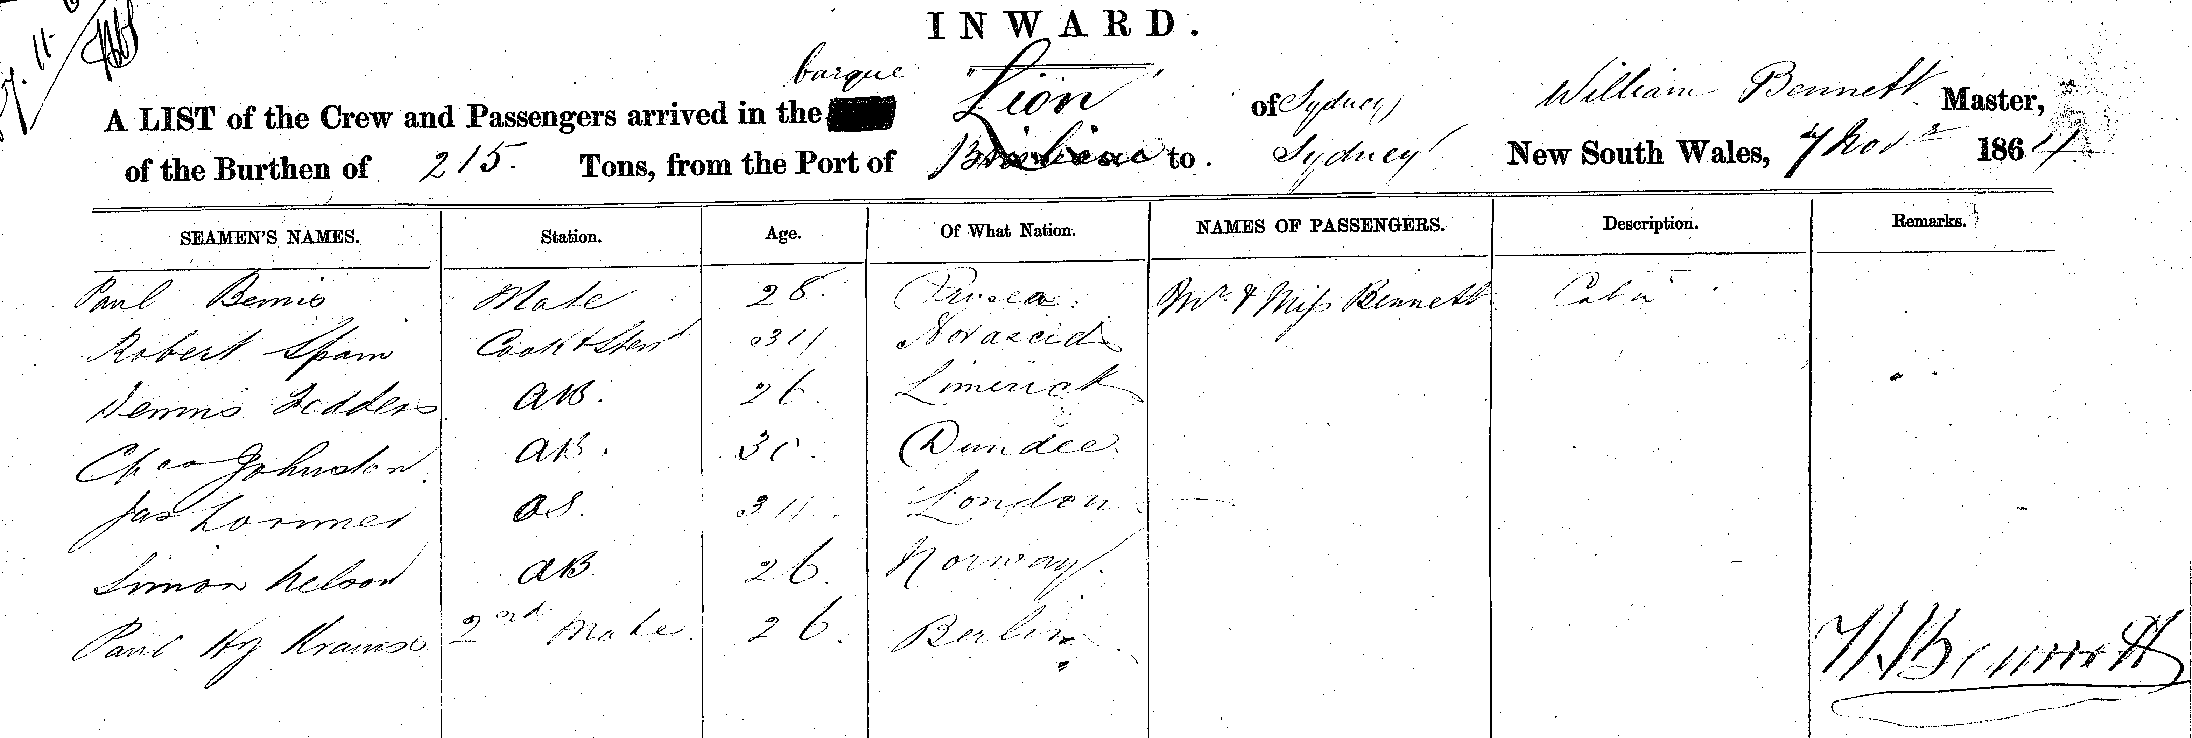 INWARD.
barque "Lion"
A LIST of the Crew and Passengers arrived in the of Sydney William Bennett Master,
of the Burthen of 215 Tons, from the Port of Brisbane to Sydney New South Wales, 7 Nov 1864
SEAMEN'S NAMES. Station. Age. Of What Nation. NAMES OF PASSENGERS. Description. Remarks.
Paul Mate 28 Mrs & Miss Bennett Cabin
Robert Spain Cook & Stew 34
Dennis AB. 26 Limerick
Chas Johnston AB. 30. Dundee.
Jas Lorimer OS. 34 London
Simon Nelson AB 26. Norway.
Paul Hy 2nd Mate 26. Berlin
W Bennett